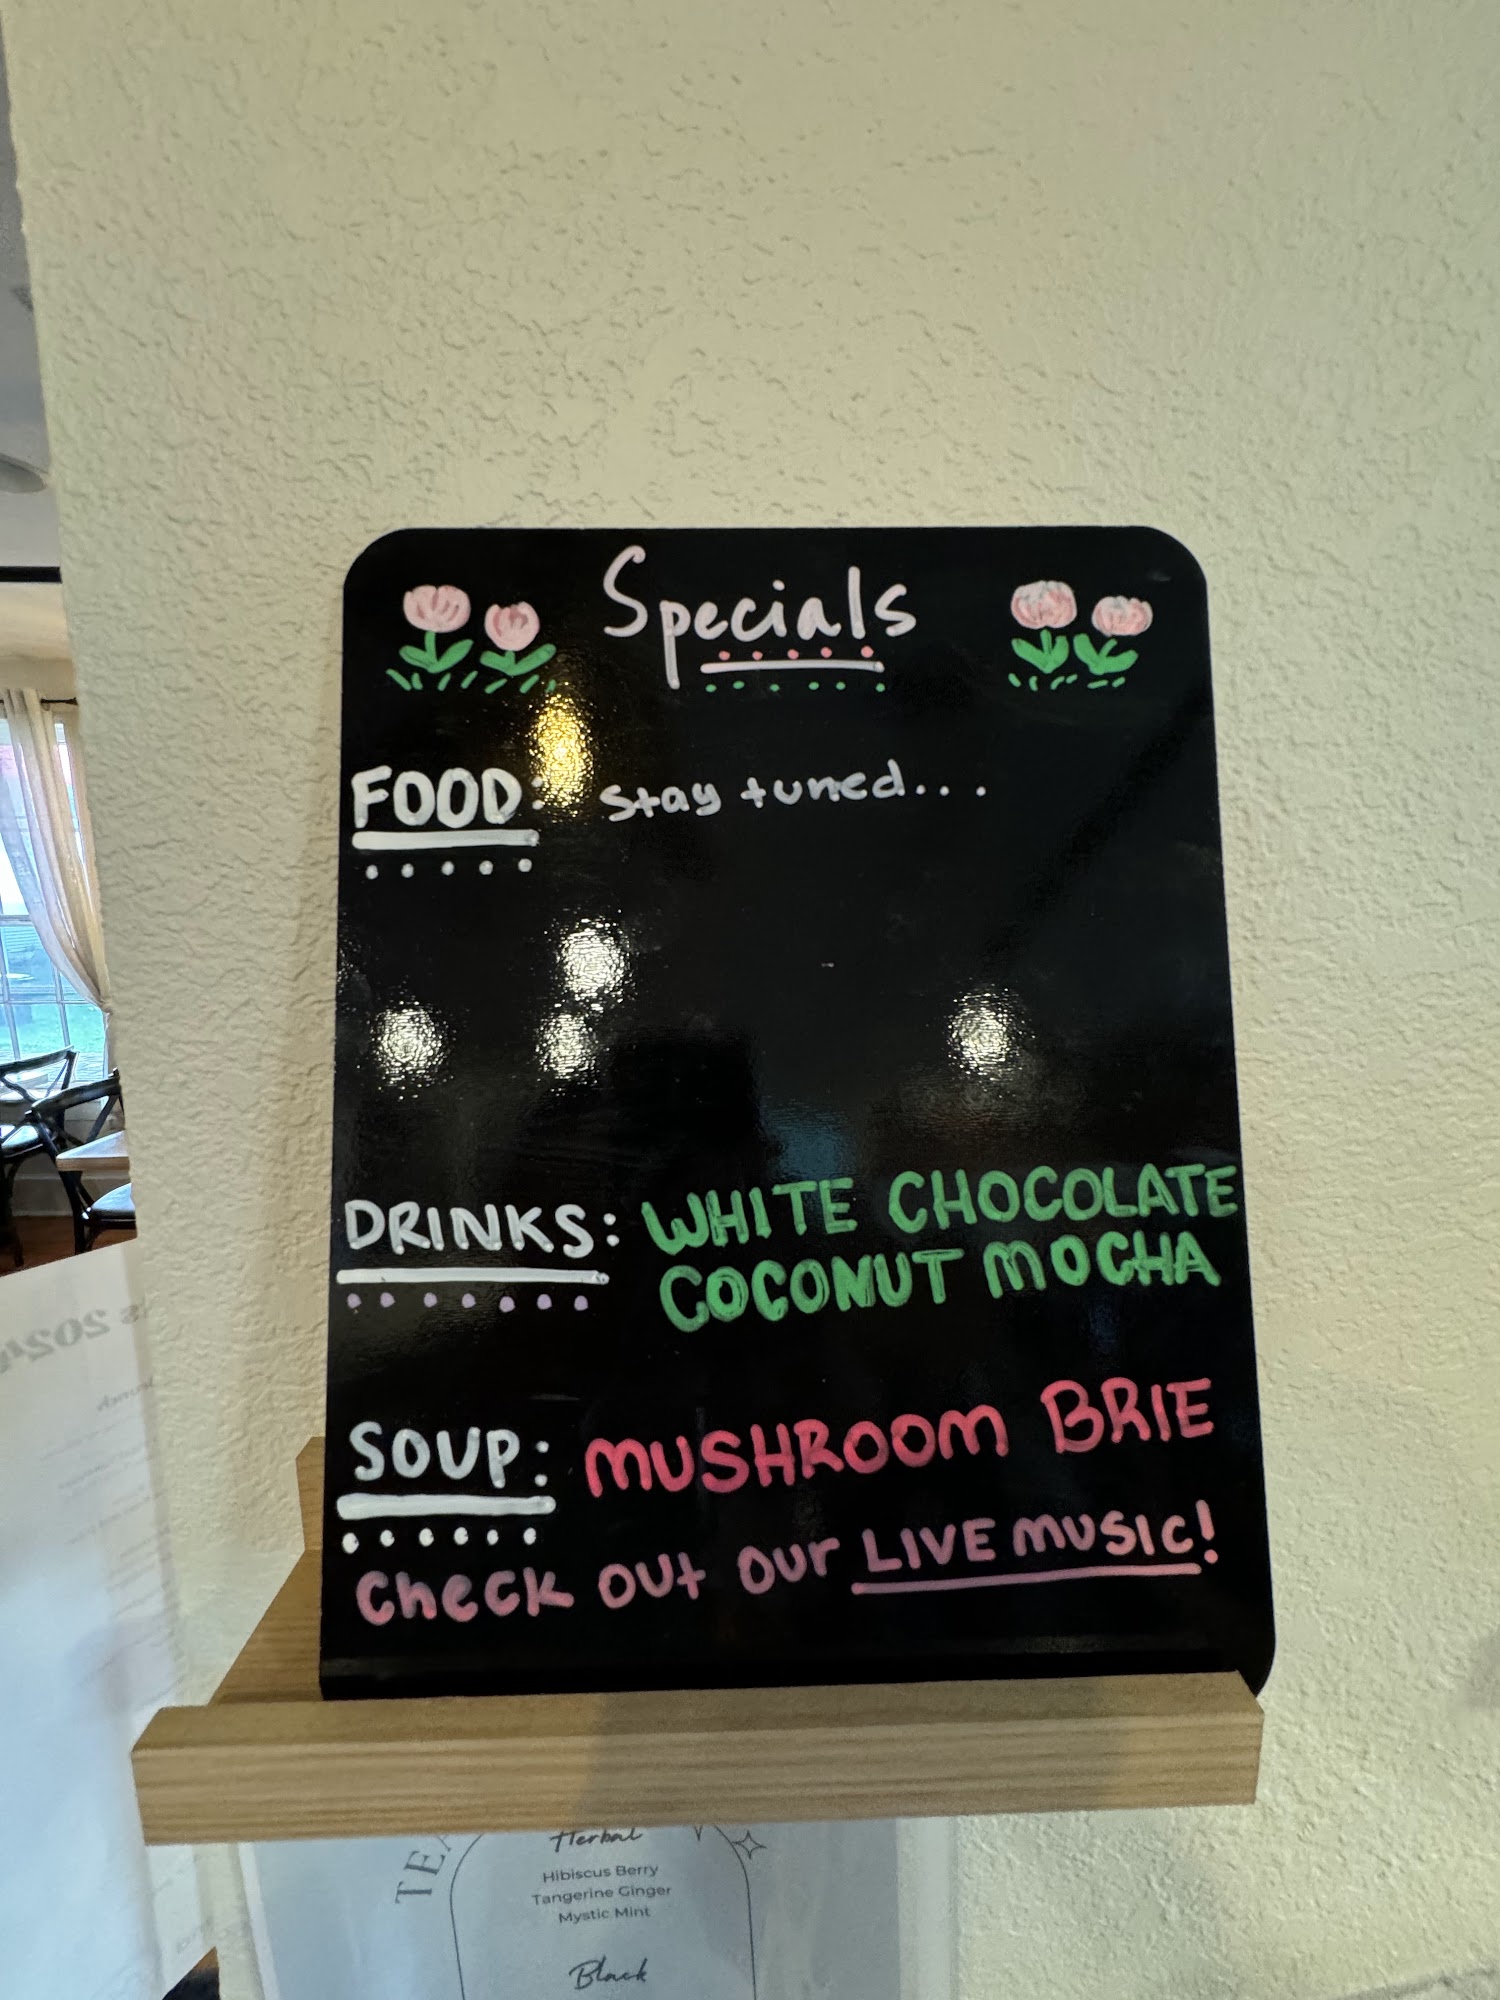 Specials
FOOD: stay tuned...
DRINKS: WHITE CHOCOLATE
COCONUT MOCHA
SOUP: MUSHROOM BRIE
Check out our LIVE MUSIC!
Herbal
Hibiscus Berry
Tangerine Ginger
Mystic Mint
Black